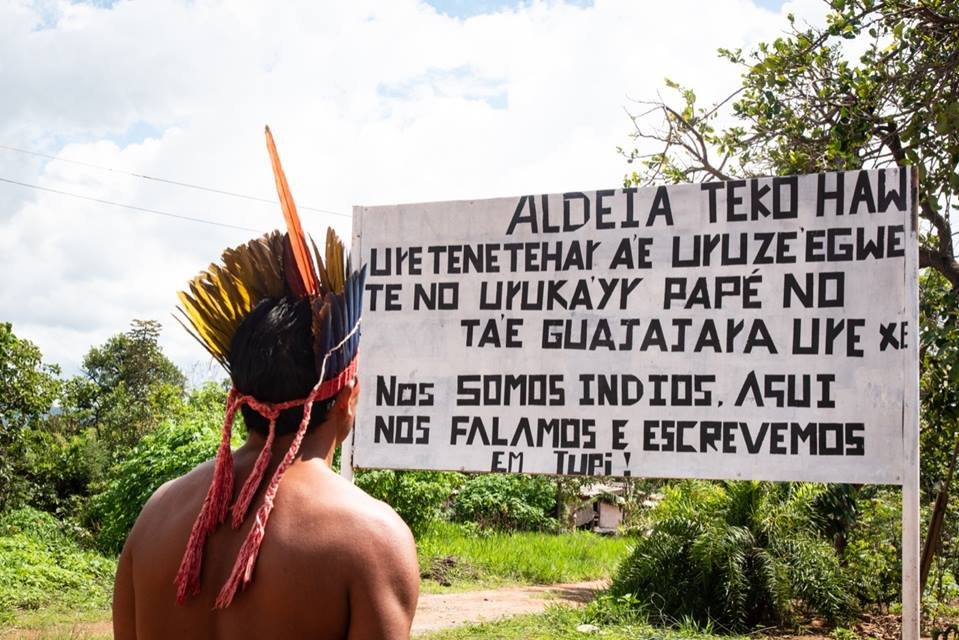 ALDEIA TEKO HAW
URE TENETEHAR A'E URUZE'EGWE
TE NO URUKA'YR PAPÉ NO
TA'E GUAJAJARA URE XE
NOS SOMOS INDIOS. AQUI
NOS FALAMOS E ESCREVEMOS
EM TUPI!